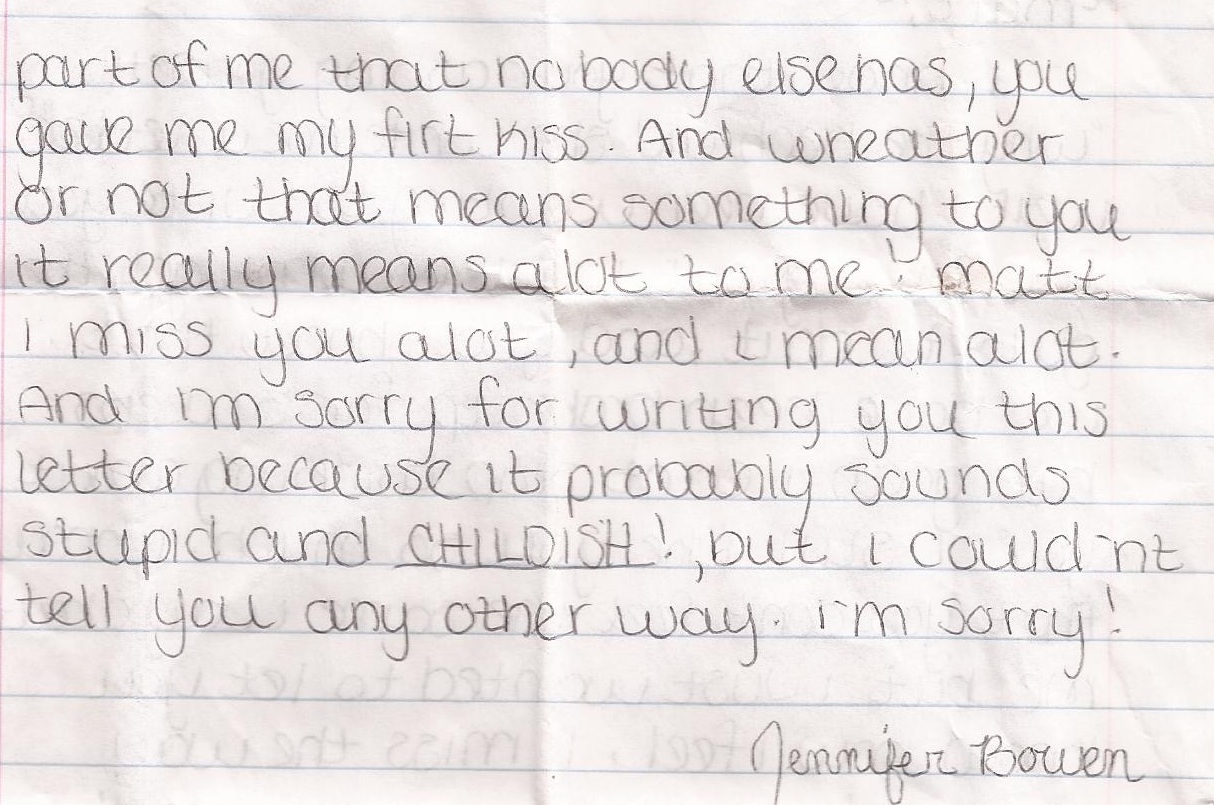 part of me that nobody else has, you
gave me my firt kiss. And wheather
or not that means something to you
it really means alot to me! matt
i miss you alot, and i mean alot.
And i'm sorry for writing you this
letter because it probably sounds
stupid and CHILDISH!, but i could'nt
tell you any other way. i'm sorry!
Jennifer Bowen